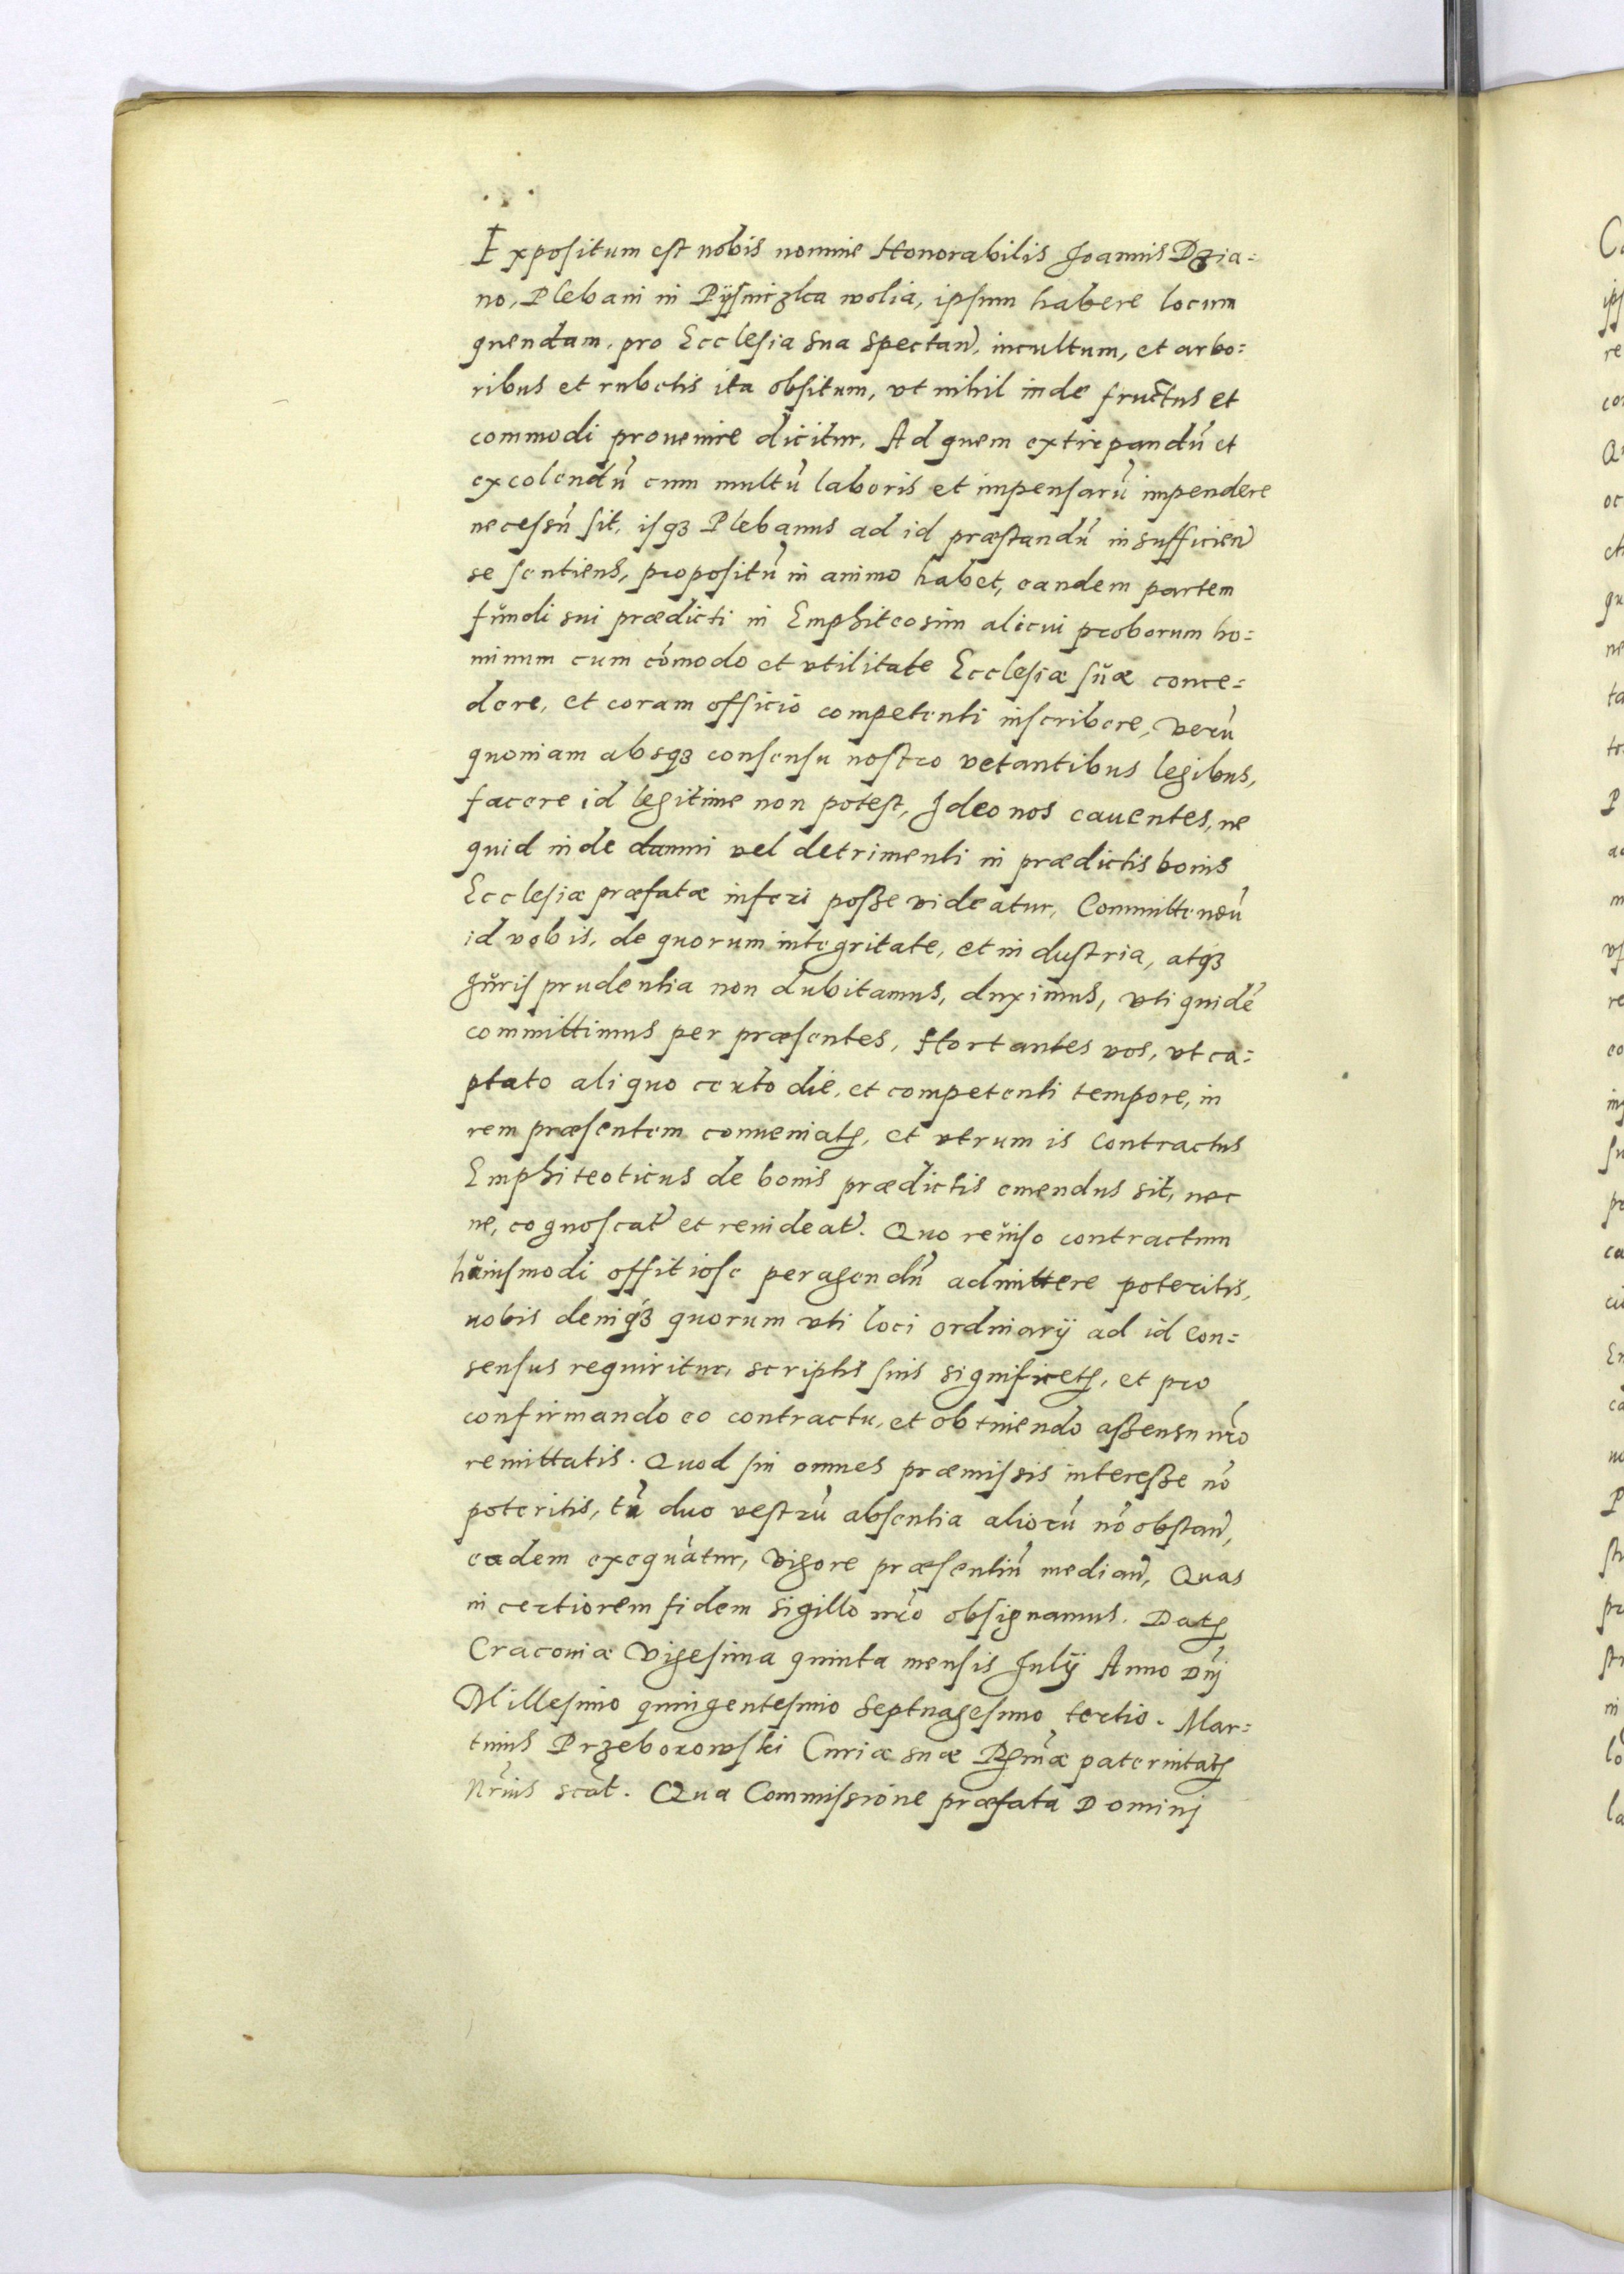 Expositum est nobis nomine Honorabilis Joannis Dzia=
no, Plebani in Pÿſniczka wolia, ipſum habere locum
quendam, pro Eccleſia sua spectan̄, incultum, et arbo=
ribus et rubetis ita obſitum, vt nihil inde fructus et
commodi prouenire dicitur, Ad quem extirpandū et
excolendū cum multū laboris et impenſarū impendere
neceſsū ſit, iſqȝ Plebanus ad id præſtandū insufficien̄
se ſentiens, propoſitū in animo habet, eandem partem
fŭndi sui prædicti in Emphiteosim alicui proborum ho=
minum cum cōmodo et vtilitate Eccleſiæ ſŭæ conce=
dere, et coram officio competenti inſcribere, verū
quoniam absqȝ conſenſu noſtro vetantibus legibus,
facere id legitime non poteſt, Ideo nos cauentes, ne
quid inde damni vel detrimenti in prædictis bonis
Eccleſiæ præfatæ inferi poſse videatur, Committendū
id vobis, de quorum integritate, et induſtria, atqȝ
Jŭriſprudentia non dubitamus, duximus, vti quidē
committimus per præſentes, Hortantes vos, vt ca=
ptato aliquo certo die, et competenti tempore, in
rem præſentem conueniatꝭ, et vtrum is contractus
Emphiteoticus de bonis prædictis emendus sit, nec
ne, cognoſcat̄ et reuideat̄. Quo reŭiſo contractum
hŭiuſmodi offitioſe peragendū admittere poteritis,
nobis deniqȝ quorum vti loci ordinarÿ ad id con=
sensus requiritur, scriptis ſuis significetꝭ, et pro
confirmando eo contractu, et obtinendo aſsensu nr̄o
remittatis. Quod ſin omnes præmiſsis intereſse nō
poteritis, tū duo veſtrū abſentia aliorū nō obſtan̄,
eadem exequātur, Vigore præſentiū median̄, Quas
in certiorem fidem Sigillo nr̄o obſignamus. Datꝭ
Cracouiæ Vigeſima quinta menſis Julÿ Anno Dn̄j
Milleſimo quingenteſimo Septuageſimo tertio. Mar=
tinus Przeborowſki Curiæ suæ Rꝭmæ paternitatꝭ
Nr̄ius scāt. Qua Commiſsione præfata Dominj